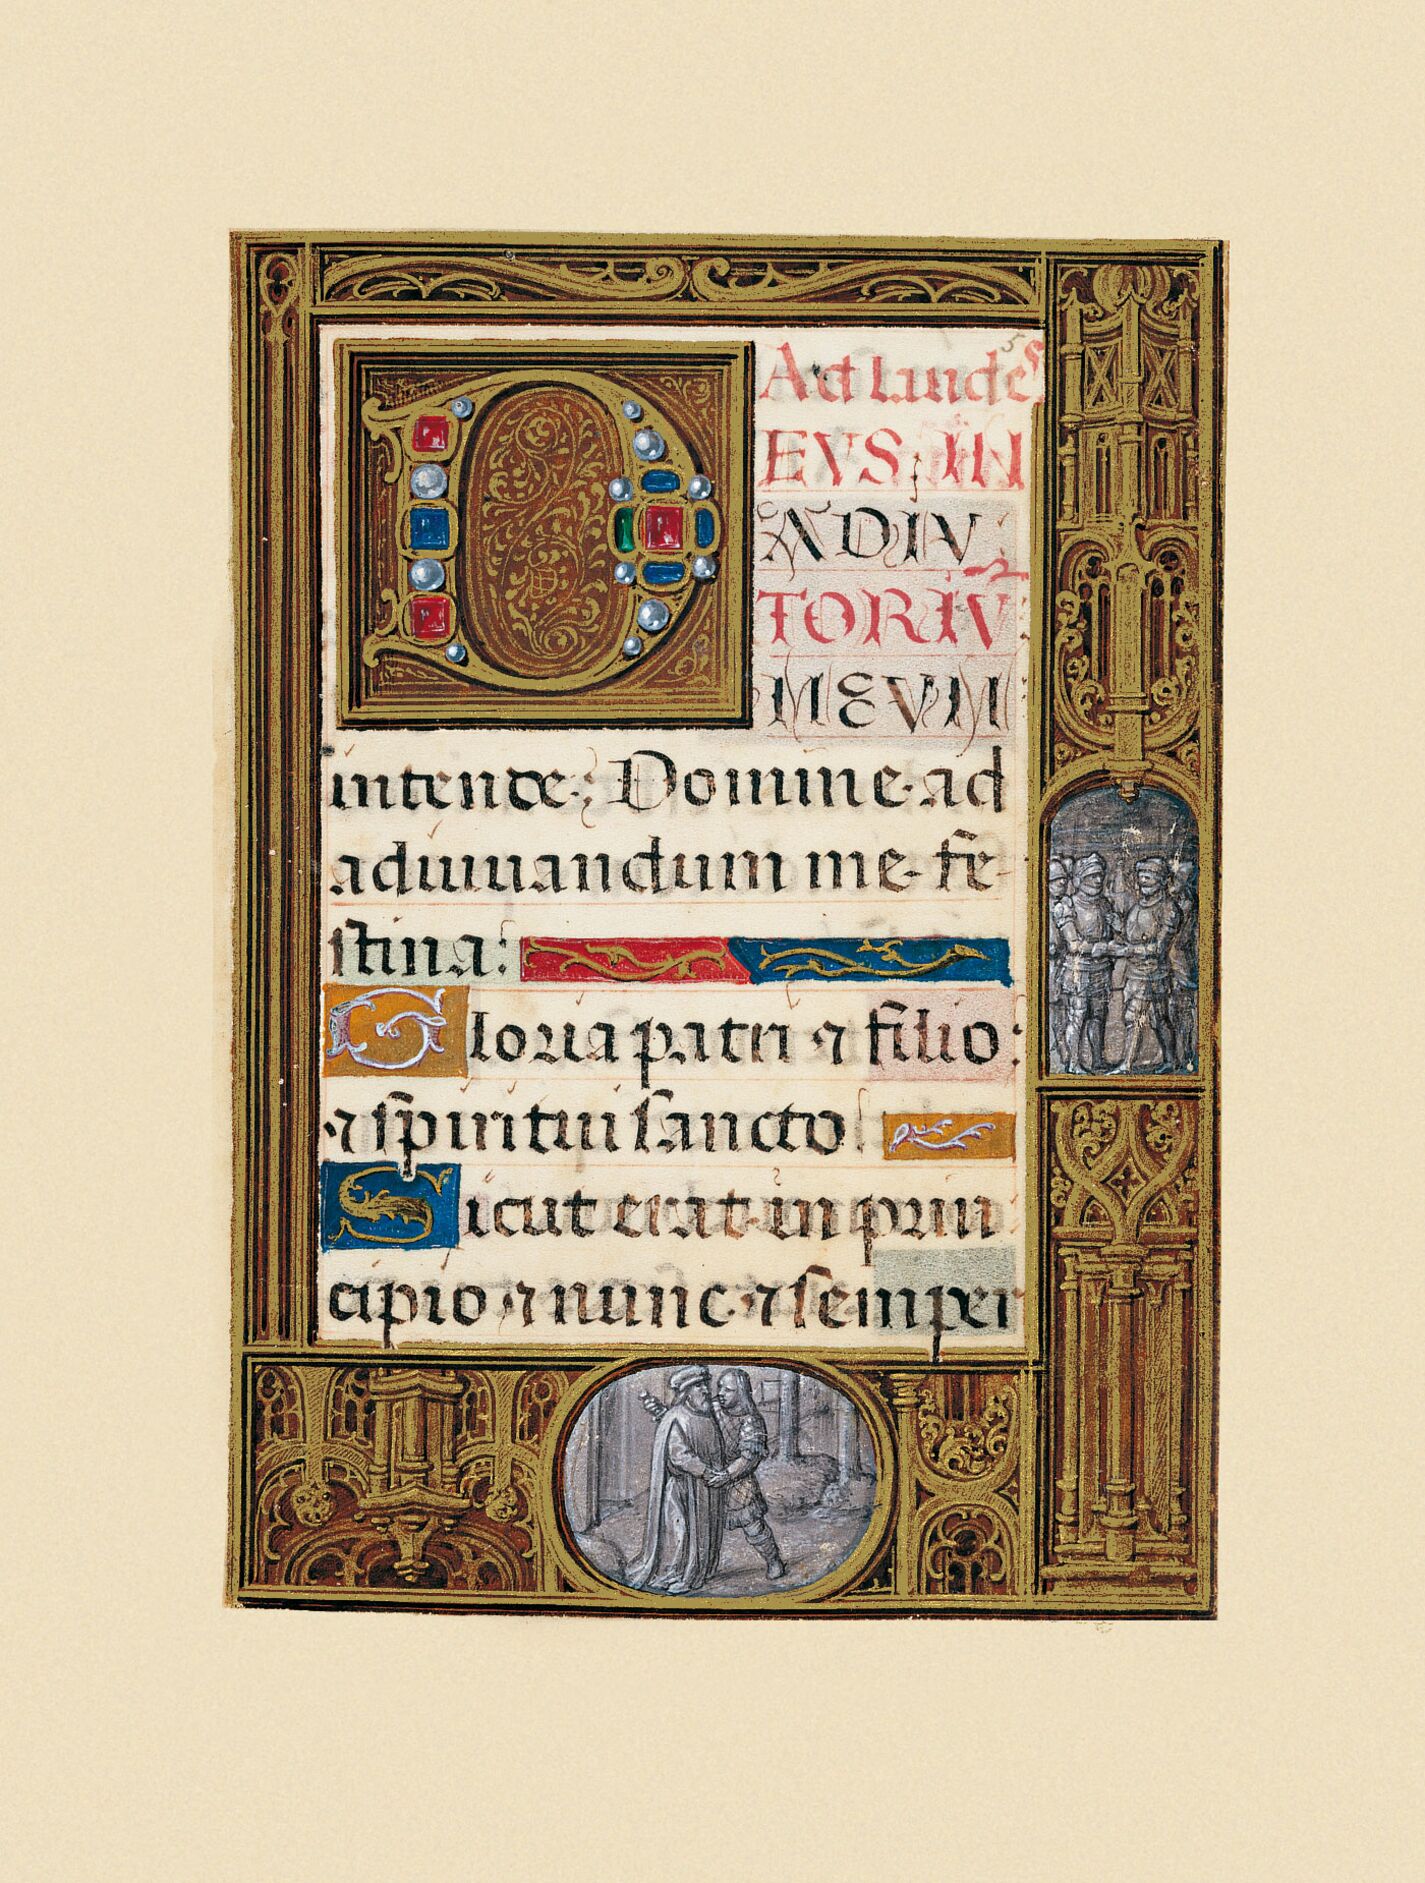 Ad laudes
DEVS IN
ADIV
TORIV
MEVM
intende. Domine ad
adiuuandum me fe
stina:
Gloria patri ⁊ filio:
⁊ spiritui sancto
Sicut erat in prin
cipio ⁊ nunc ⁊ semper